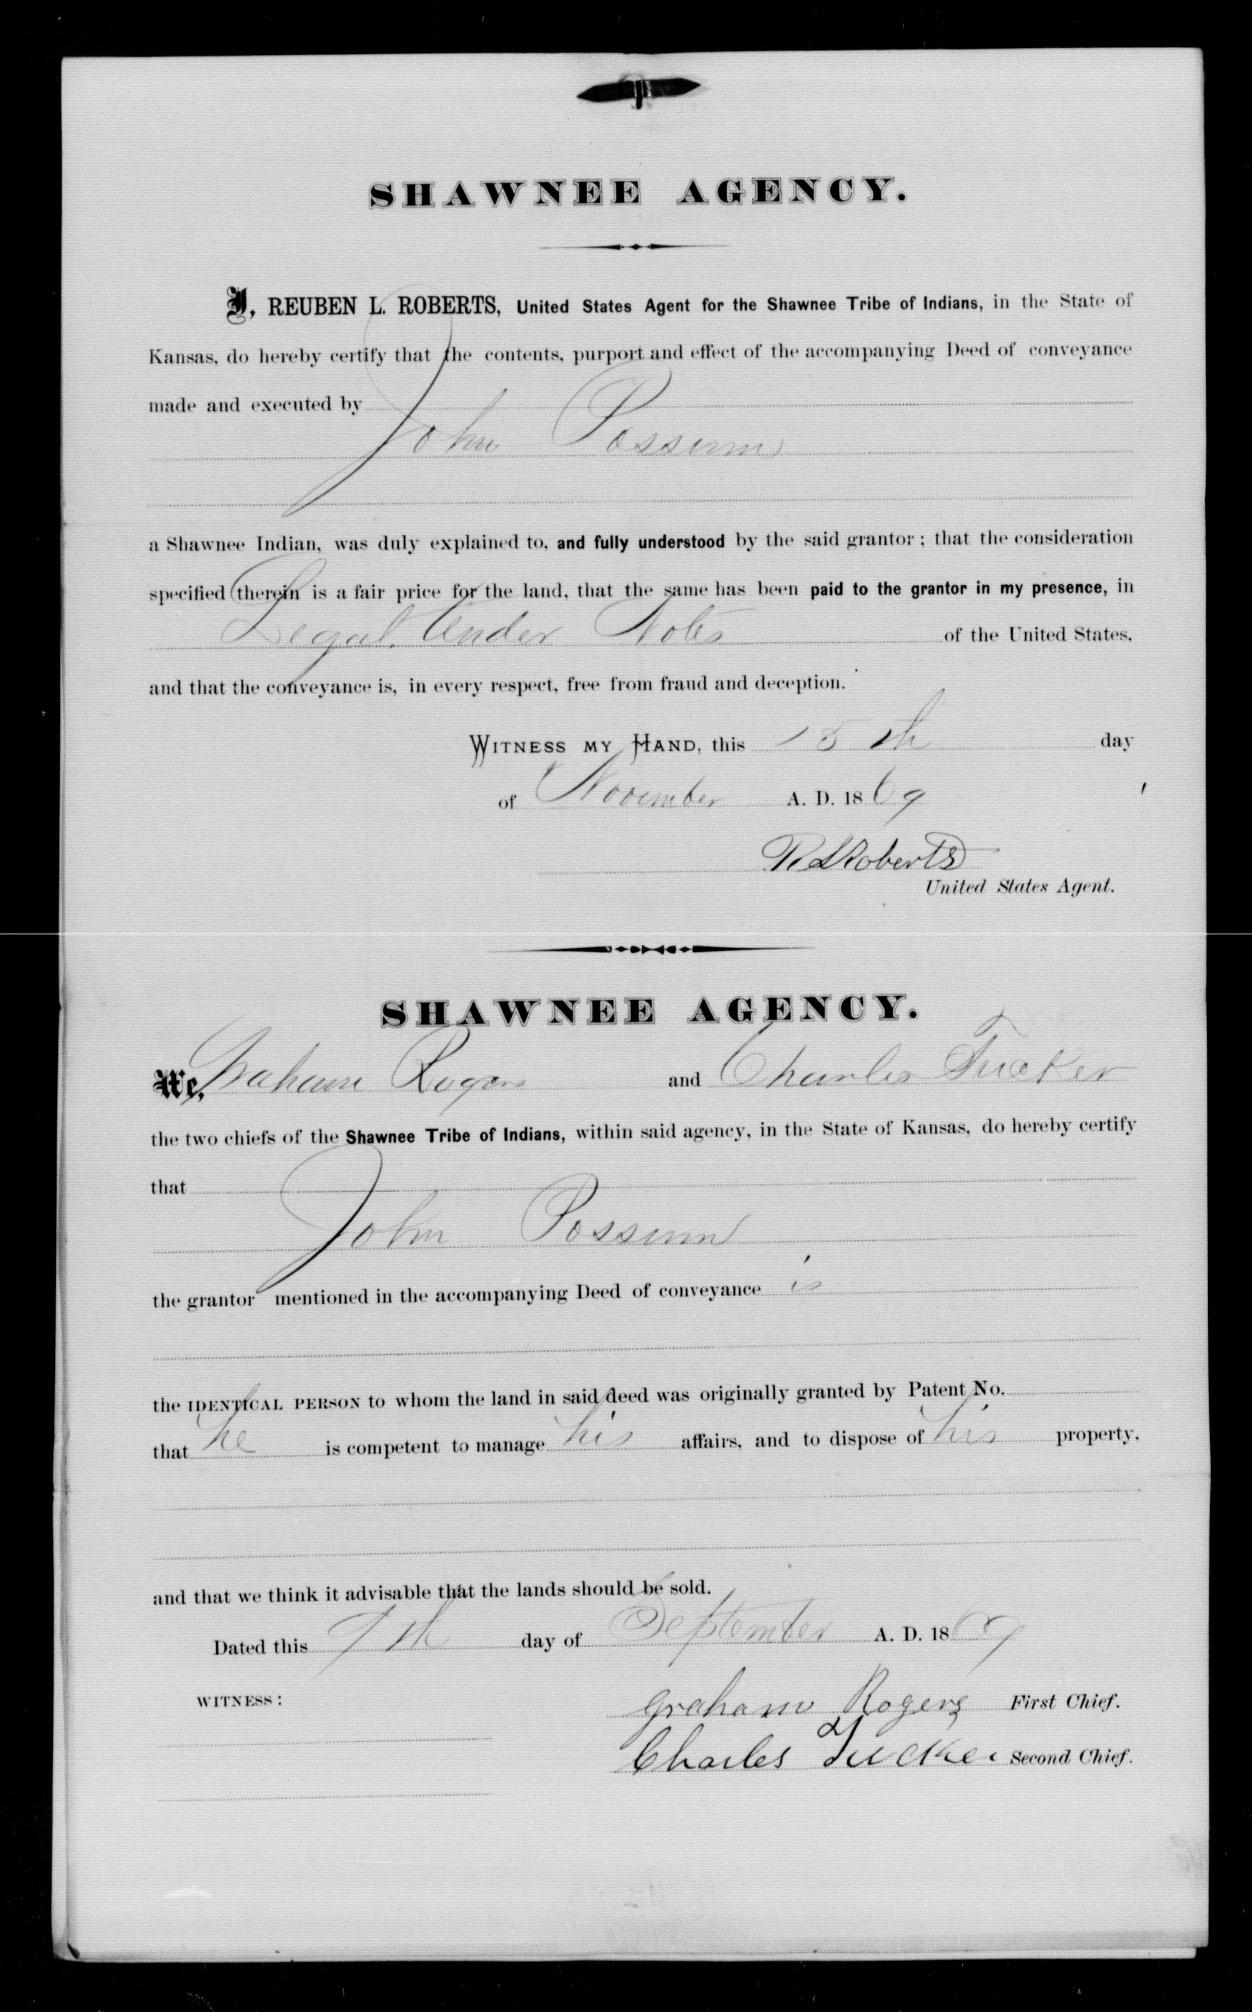 SHAWNEE AGENCY.
I, REUBEN L. ROBERTS, United States Agent for the Shawnee Tribe of Indians, in the State of
Kansas, do hereby certify that the contents, purport and effect of the accompanying Deed of conveyance
made and executed by
John Possum
a Shawnee Indian, was duly explained to, and fully understood by the said grantor; that the consideration
specified therein is a fair price for the land, that the same has been paid to the grantor in my presence, in
Legal Tender Notes of the United States,
and that the conveyance is, in every respect, free from fraud and deception.
WITNESS MY HAND, this 15th day
of November A. D. 1869
R. L. Roberts
United States Agent.
SHAWNEE AGENCY.
We, Graham Rogers and Charles Tucker
the two chiefs of the Shawnee Tribe of Indians, within said agency, in the State of Kansas, do hereby certify
that
John Possum
the grantor mentioned in the accompanying Deed of conveyance is
the IDENTICAL PERSON to whom the land in said deed was originally granted by Patent No.
that he is competent to manage his affairs, and to dispose of his property,
and that we think it advisable that the lands should be sold.
Dated this 9th day of September A. D. 1869
WITNESS:
Graham Rogers First Chief.
Charles Tucker Second Chief.